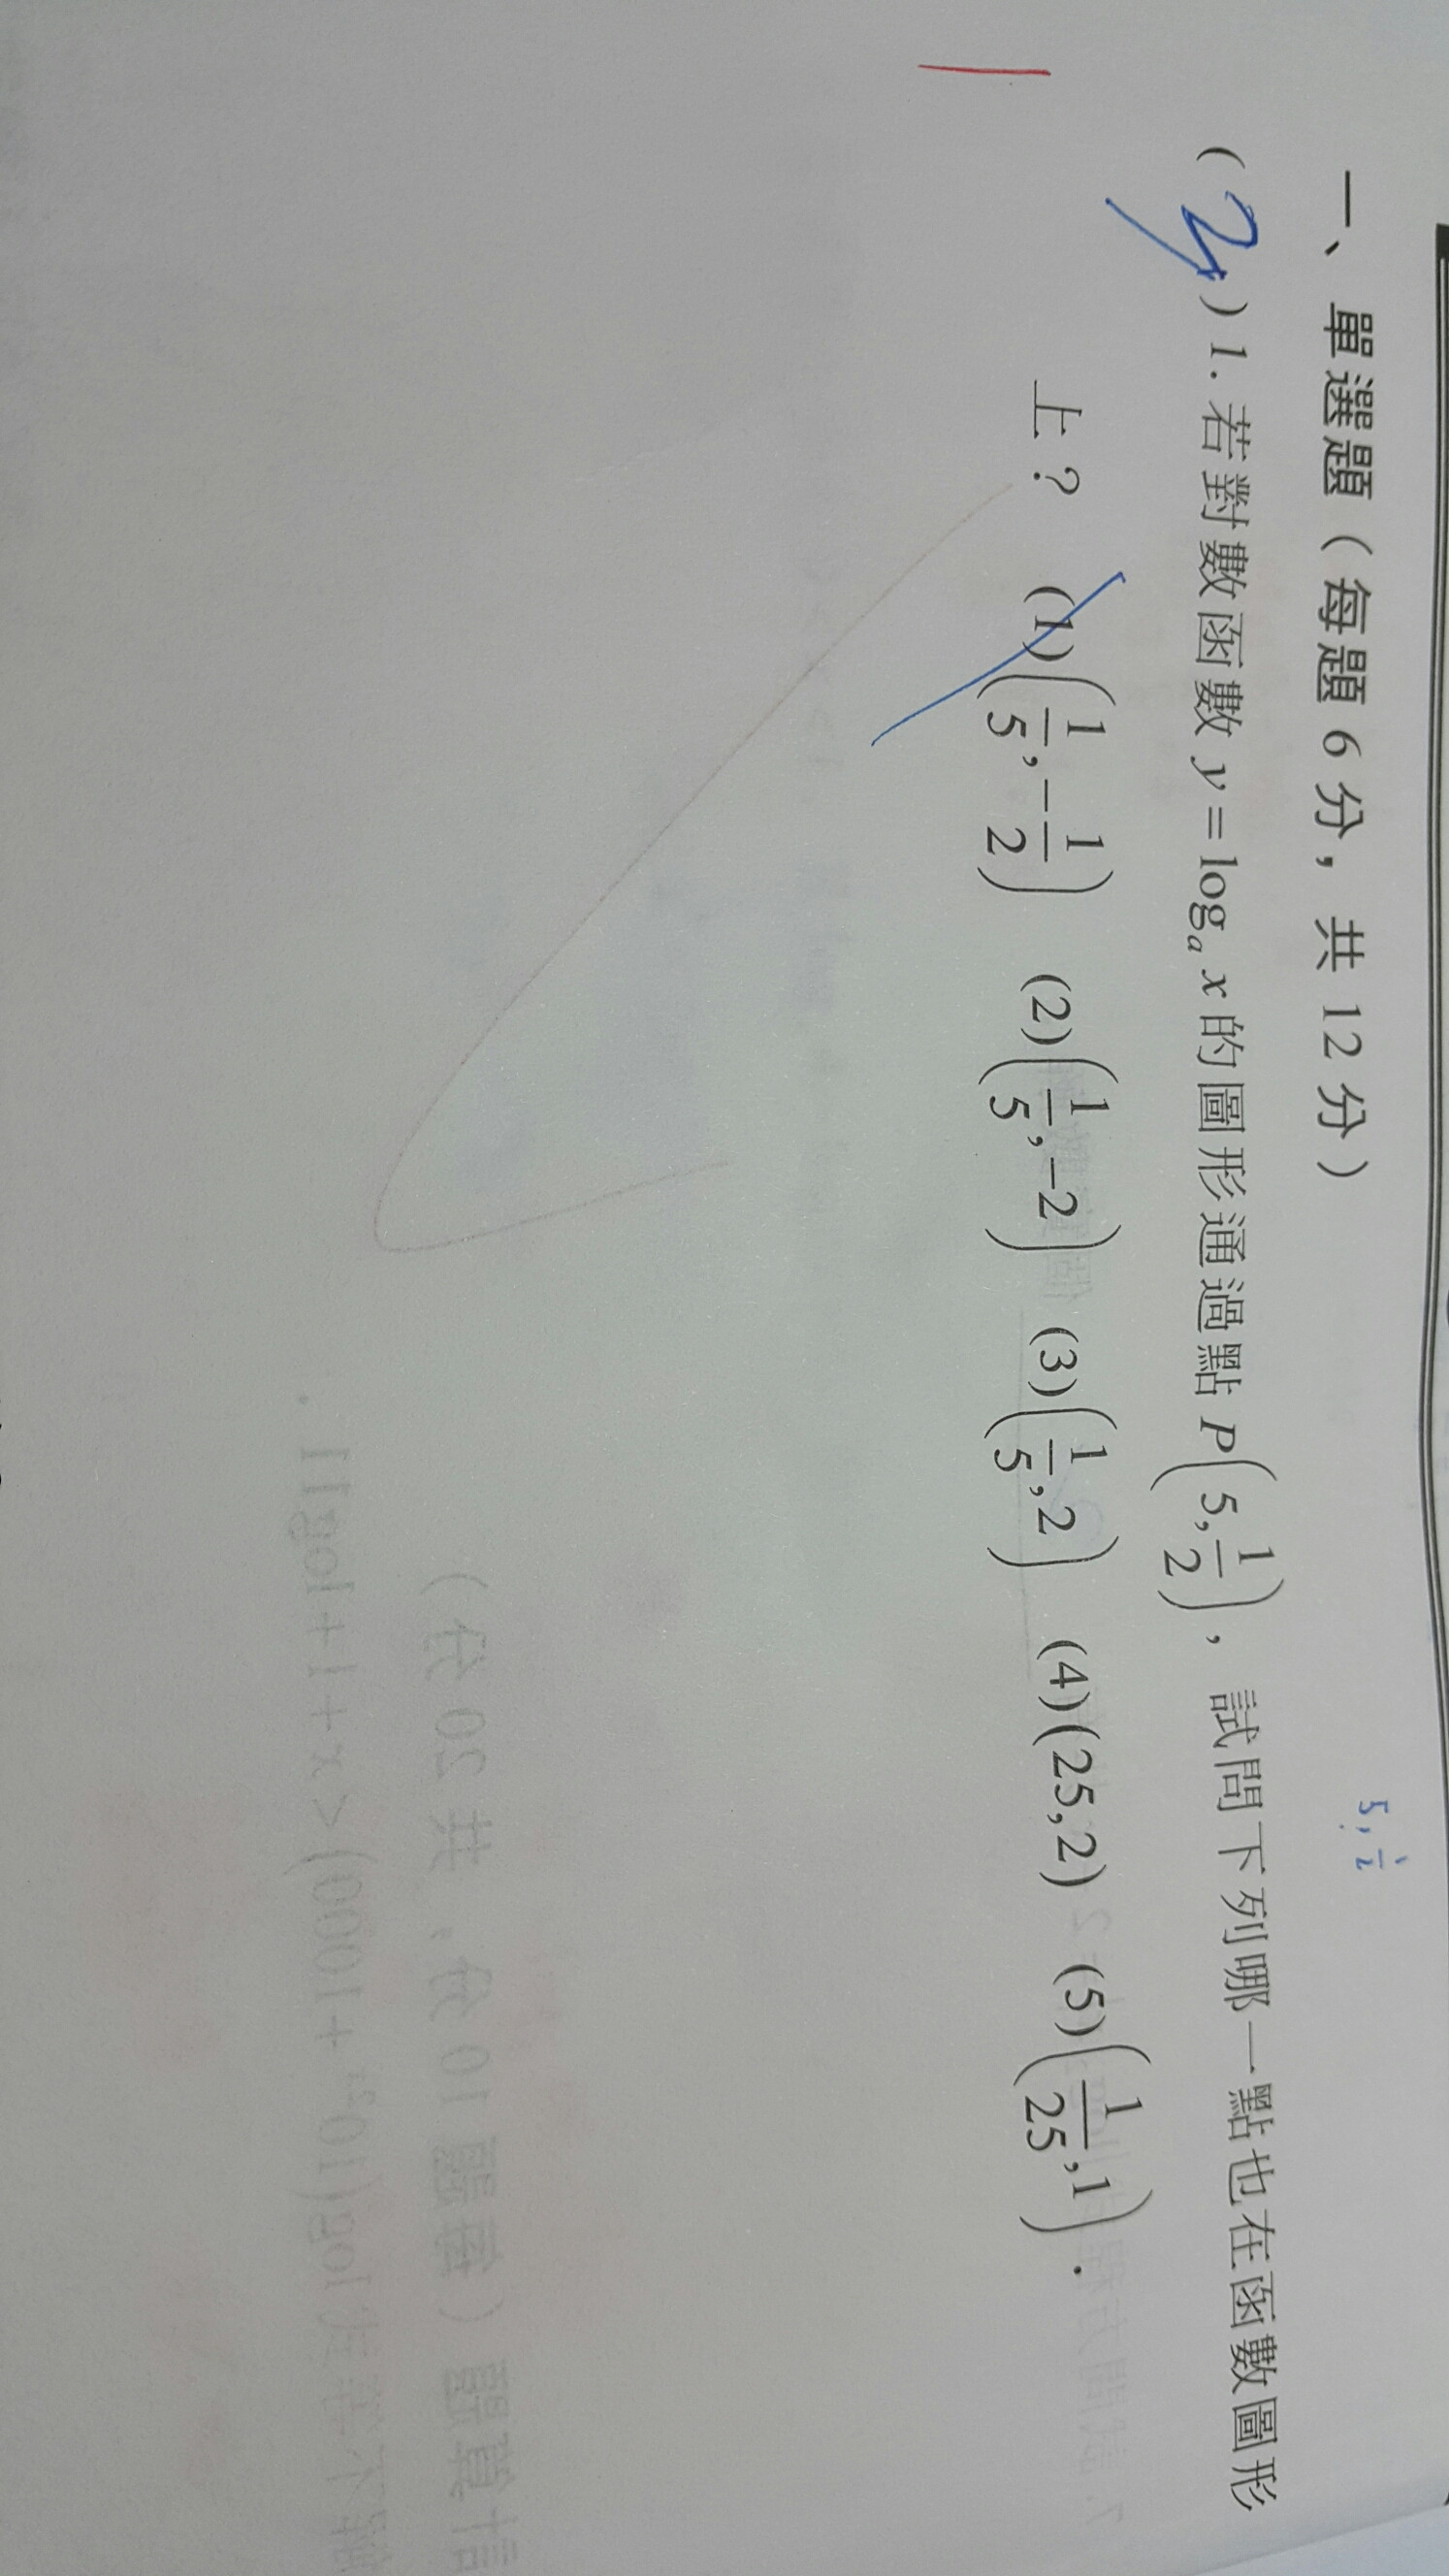 一、單選題(每題6分,共12分)
5, 1/2
( 2 ) 1. 若對數函數 y = logₐ x 的圖形通過點 P(5, 1/2),試問下列哪一點也在函數圖形
上? (1)(1/5, -1/2) (2)(1/5, -2) (3)(1/5, 2) (4)(25, 2) (5)(1/25, 1).